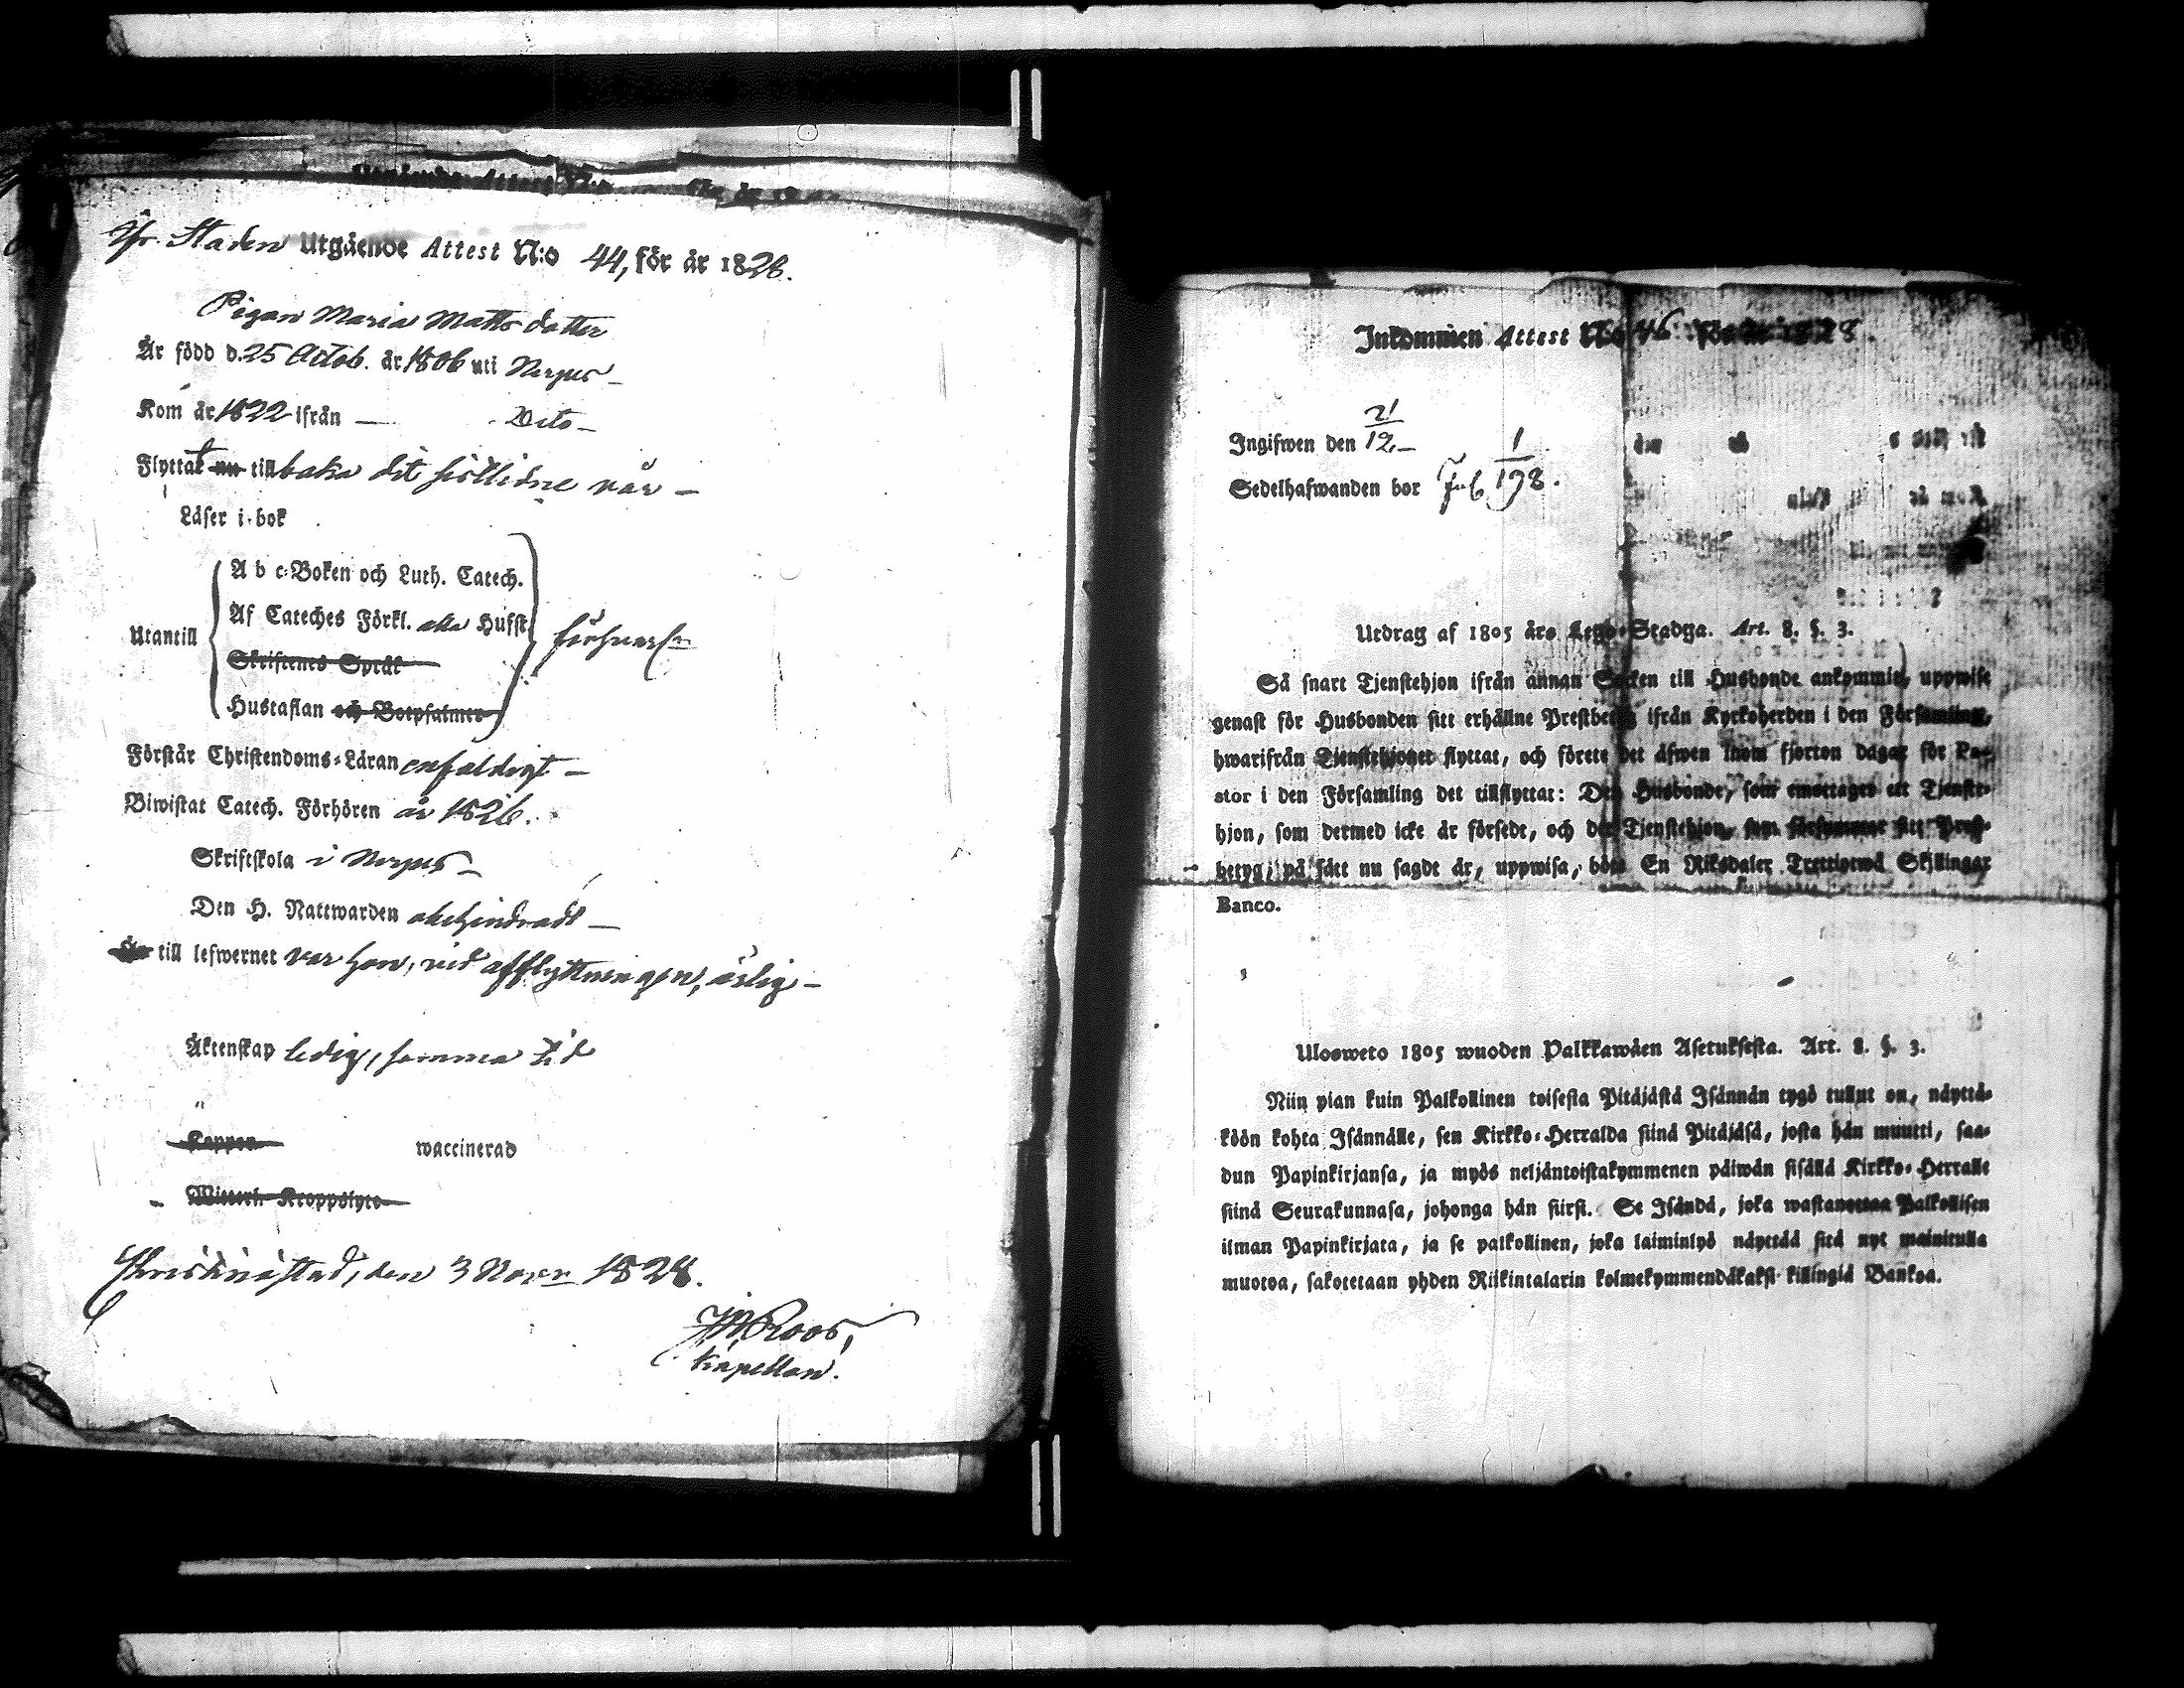 Fr. Staden Utgående Attest N:o 44, för år 1828.
Pigan Maria Matts dotter
Är född d. 25 Octob. år 1806 uti Nerpes
Kom år 1822 ifrån — Dito —
Flyttat nu tillbaka dit sistlidne vår —
Läser i bok
A b c-Boken och Luth. Catech.
Af Cateches Förkl. alla Hufst.
Utantill
försvarl:n
Skriftenes Språk
Hustaflan och Botpsalmer
Förstår Christendoms-Läran enfaldigt —
Biwistat Catech. Förhören år 1826.
Skriftskola i Nerpes —
Den H. Nattwarden obehindradt —
Är till lefwernet var hon, vid afflyttningen, ärlig —
Äktenskap ledig, samma tid
Koppor
waccinerad
Witterl. Kroppslyte
Christinæstad, den 3 Novr 1828.
Roos,
Kapellan.
Inkommen Attest N:o 46 För år 1828.
Ingifwen den 21/12 —
Sedelhafwanden bor 1/198.
Utdrag af 1805 års Lego-Stadga. Art. 8. §. 3.
Så snart Tjenstehjon ifrån annan Socken till Husbonde ankommit, uppwise
genast för Husbonden sitt erhållne Prestbetyg ifrån Kyrkoherden i den Församling,
hwarifrån Tjenstehjonet flyttat, och förete det äfwen inom fjorton dagar för Pa-
stor i den Församling det tillflyttat: Den Husbonde, som emottager ett Tjenste-
hjon, som dermed icke är försedt, och det Tjenstehjon, som försummar sitt Prest-
betyg, på sätt nu sagdt är, uppwisa, böte En Riksdaler Trettiotwå Skillingar
Banco.
Ulosweto 1805 wuoden Palkkawäen Asetuksesta. Art. 8. §. 3.
Niin pian kuin Palkollinen toisesta Pitäjästä Isännän tygö tullut on, näyttä-
köön kohta Isännälle, sen Kirkko-Herralda siinä Pitäjäsä, josta hän muutti, saa-
dun Papinkirjansa, ja myös neljäntoistakymmenen päiwän sisällä Kirkko-Herralle
siinä Seurakunnasa, johonga hän siirsi. Se Isändä, joka wastanottaa Palkollisen
ilman Papinkirjata, ja se palkollinen, joka laiminlyö näyttää sitä nyt mainitulla
muotoa, sakotetaan yhden Riikintalarin kolmekymmendäkaksi killingiä Bankoa.